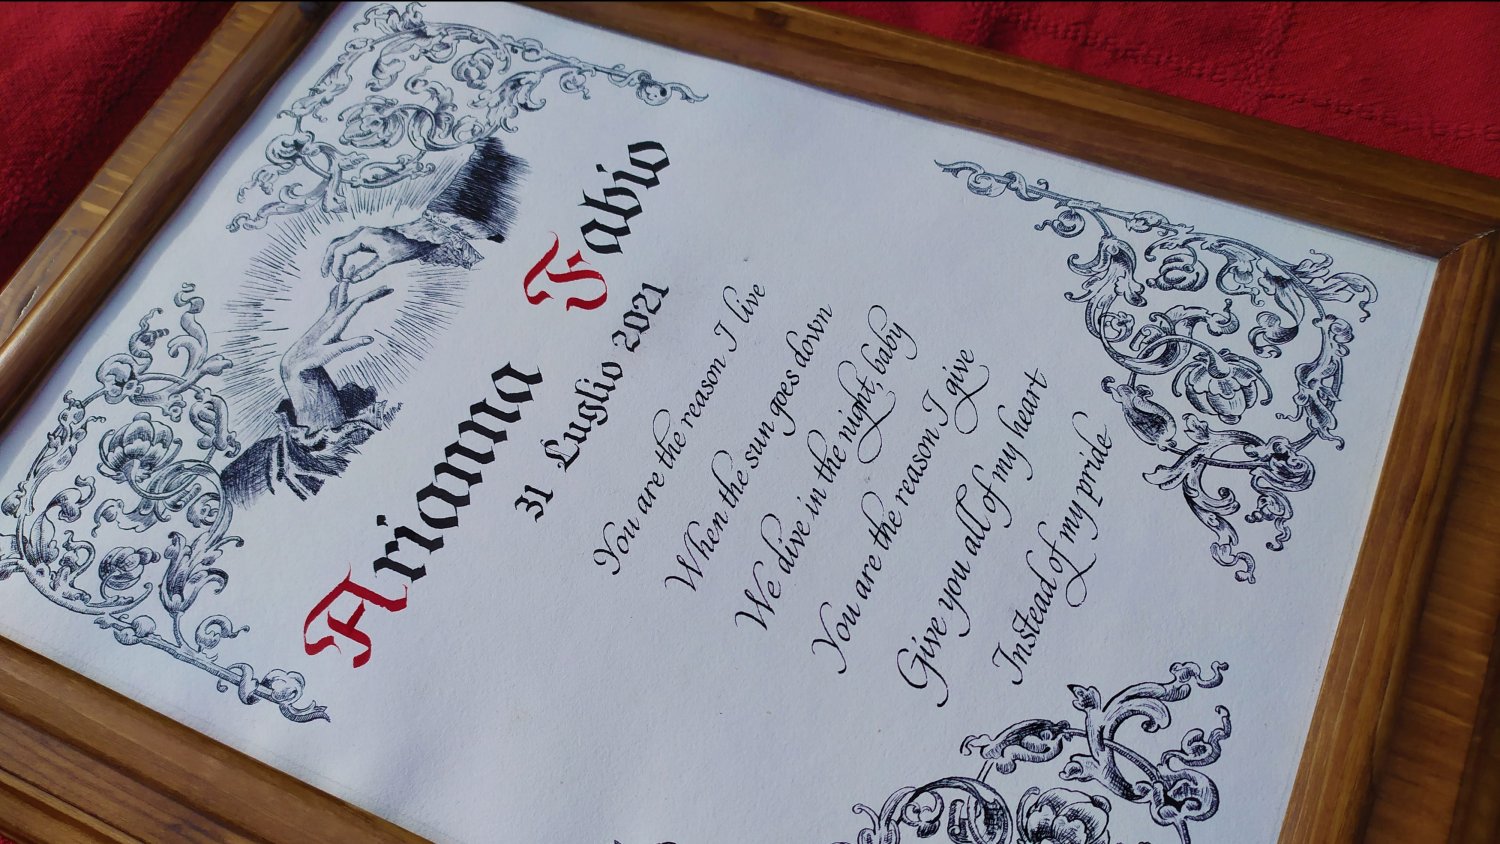 Arianna Fabio
31 Luglio 2021
You are the reason I live
When the sun goes down
We dive in the night, baby
You are the reason I give
Give you all of my heart
Instead of my pride